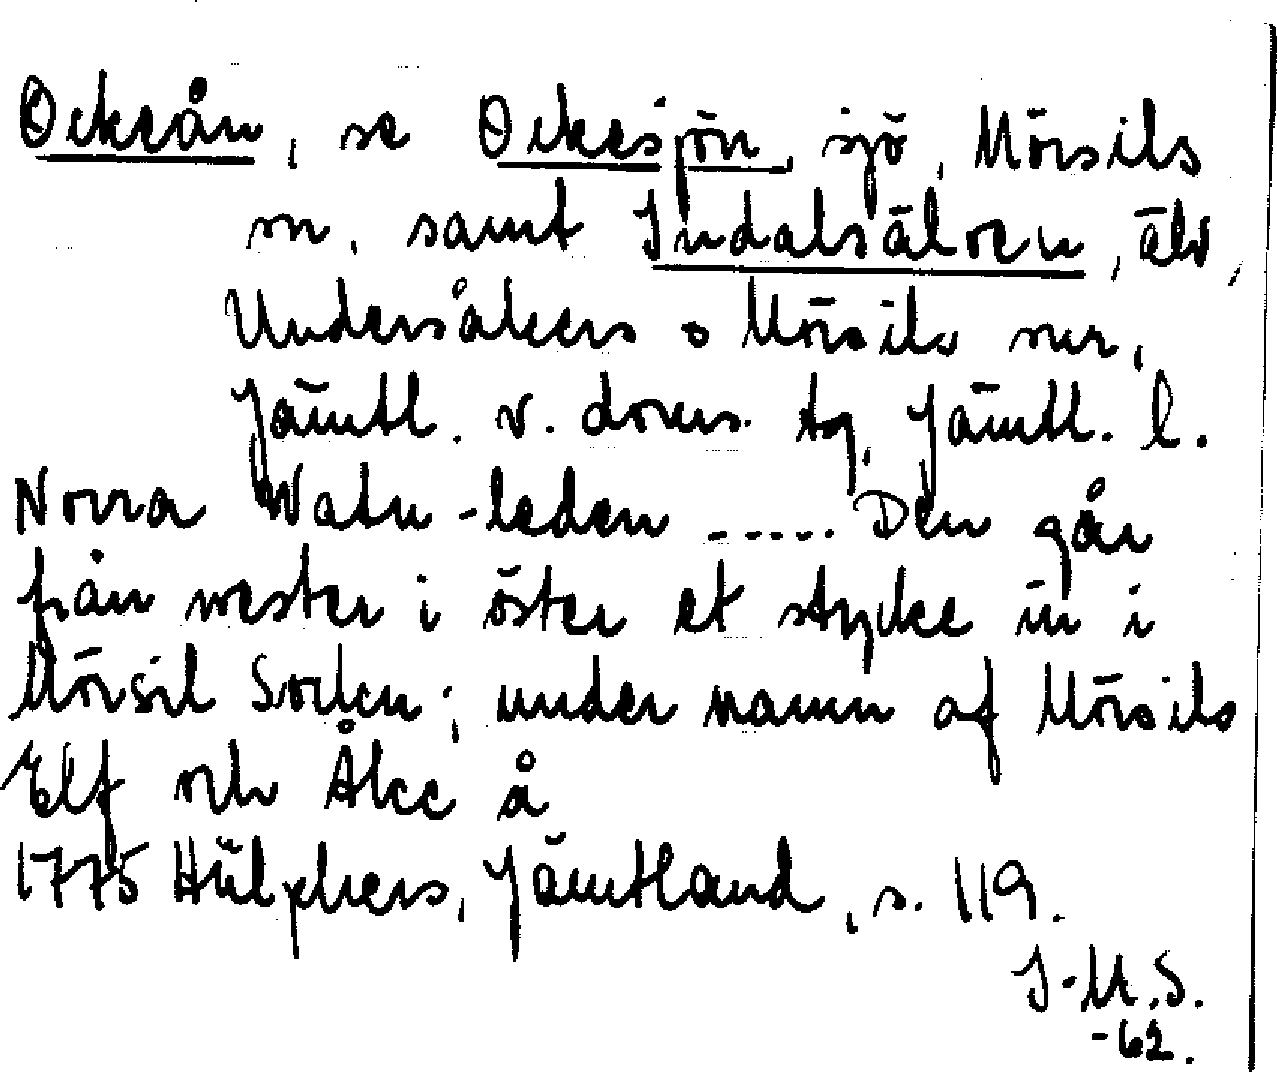 Ockeån, se Ockesjön, sjö, Mörsils
sn, samt Indalsälven, älv,
Undersåkers o Mörsils snr,
Jämtl. v. doms. tg, Jämtl. l.
Norra Watn-leden ..... Den går
från wester i öster et stycke in i
Mörsil Socken; under namn af Mörsils
Elf och Åkee å
1775 Hülphers, Jämtland, s. 119.
I-M.S.
-62.